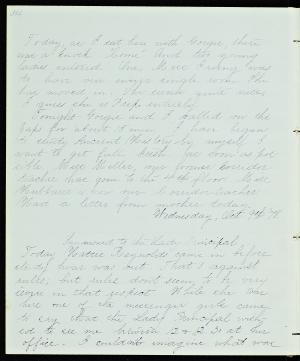 Today, as I sat here with Gorgie, there
was a knock. "Come" And two young
ladies entered. One, Miss Ewing was
to have our single room. She
moved in. She seems quite nice.
I guess she is Prep entirely.
Tonight Gorgie and I called on the
Caps for about 15 min. I have began
to study Ancient History by myself. I
want to get fully fresh as soon as pos-
sible. Miss Hiller, our former Corridor
teacher has gone to the 4th floor. Miss
is now our Corridor teacher.
Had a letter from mother today.
Wednesday, Oct
Summoned to the Lady Principal
Today Hattie Reynolds came in before
study hour was out. That's against
rules; but rules don't seem to be very
severe in that respect. While she was
here one of the messenger girls came
to say that the Lady Principal wish-
ed to see me between 12 & 12.30 at her
office. I couldn't imagine what was